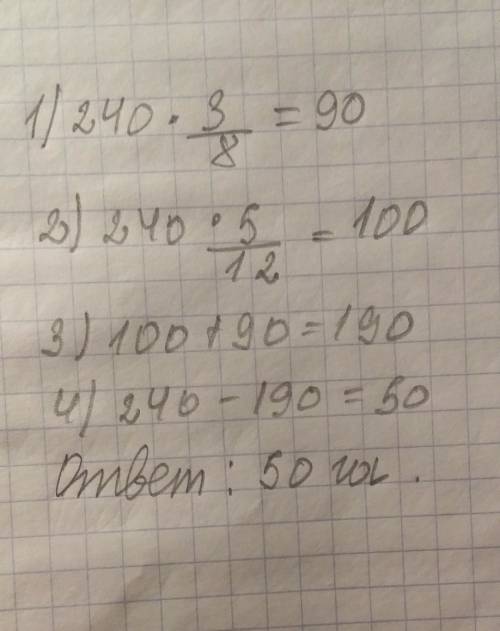 1) 240 · 3/8 = 90
2) 240 · 5/12 = 100
3) 100 + 90 = 190
4) 240 - 190 = 50
Ответ: 50